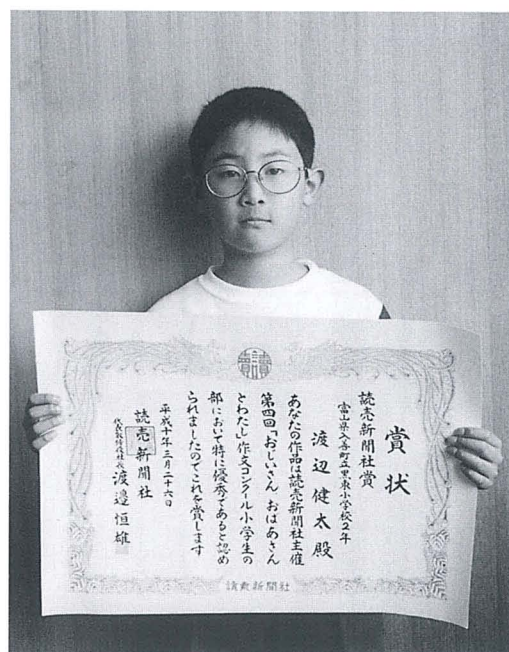 賞状
読売新聞社賞
富山県入善町立黒東小学校2年
渡辺健太殿
あなたの作品は読売新聞社主催
第四回「おじいさん おばあさん
とわたし」作文コンクール小学生の
部において特に優秀であると認め
られましたのでこれを賞します
平成十年三月二十六日
読売新聞社
代表取締役社長 渡邉恒雄
讀賣新聞社